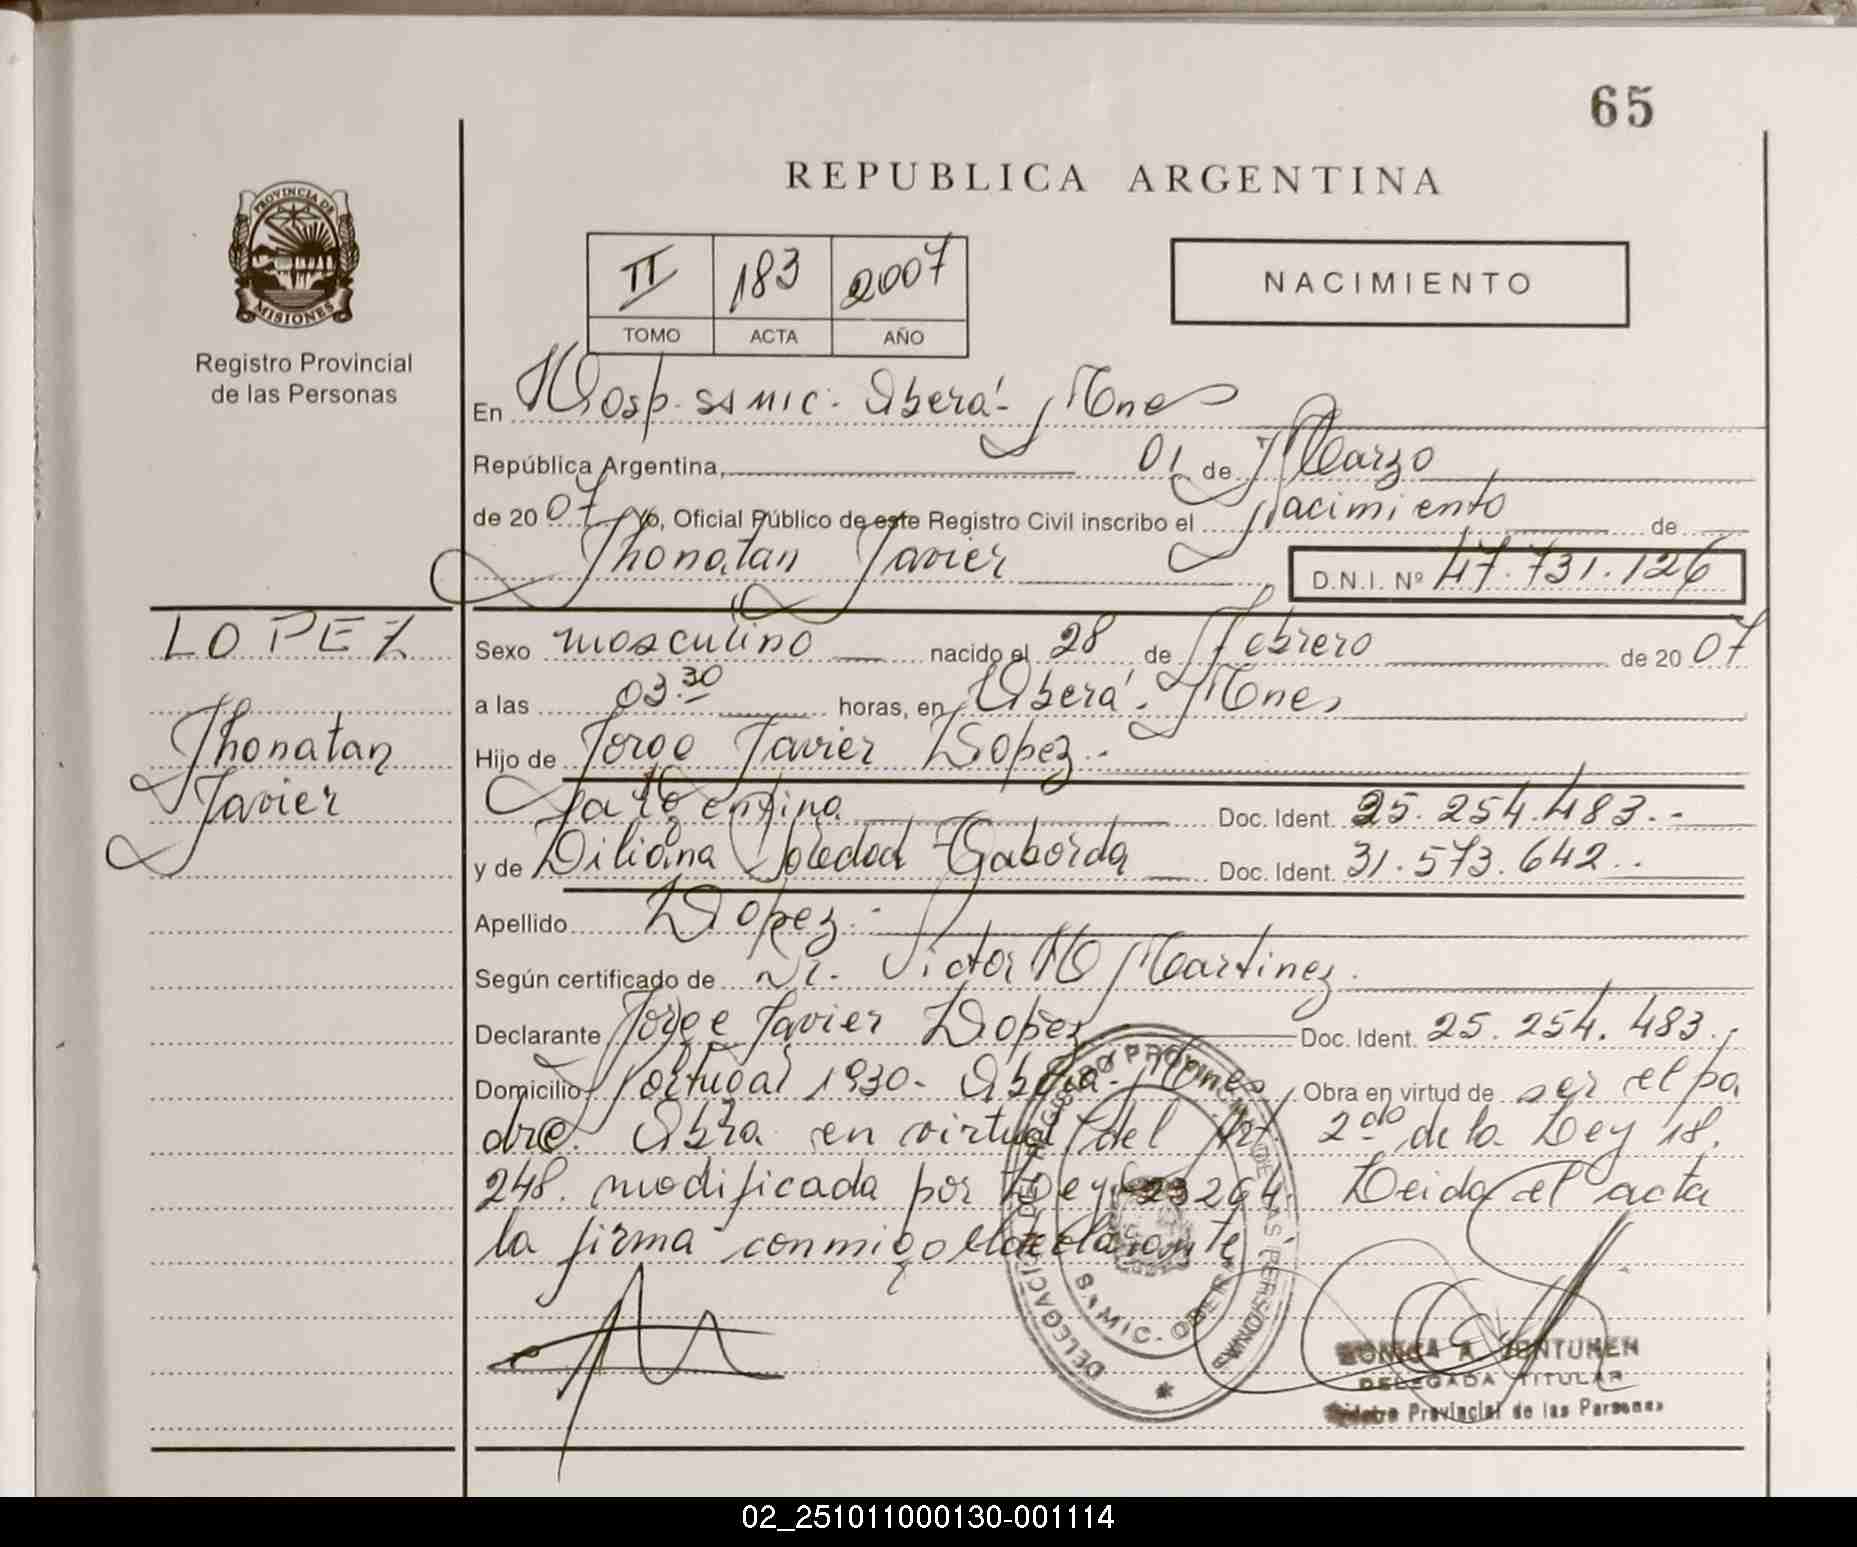 65
REPUBLICA ARGENTINA
PROVINCIA DE
MISIONES
Registro Provincial
de las Personas
II 183 2007
TOMO ACTA AÑO
NACIMIENTO
En Hosp. SAMIC. Oberá - Mnes
República Argentina, 01 de Marzo
de 2007 Yo, Oficial Público de este Registro Civil inscribo el Nacimiento de
Jhonatan Javier D.N.I. Nº 47.731.126
LOPEZ
Jhonatan
Javier
Sexo masculino nacido el 28 de Febrero de 2007
a las 03.30 horas, en Oberá - Mnes
Hijo de Jorge Javier Lopez.-
Doc. Ident. 25.254.483.-
y de Liliana Soledad Taborda Doc. Ident. 31.573.642..
Apellido Lopez.-
Según certificado de Dr. Victor H Martinez.
Declarante Jorge Javier Lopez Doc. Ident. 25.254.483.-
Domicilio Portugal 1930 - Oberá - Mnes Obra en virtud de ser el pa
dre. Obra en virtud del Art. 2do de la Ley 18.
248. modificada por Ley 23264. Leida el acta
la firma conmigo el declarante
DELEGACION DEL REGISTRO PROVINCIAL DE LAS PERSONAS
SAMIC. OBERA
DELEGADA TITULAR
Registro Provincial de las Personas
02_251011000130-001114